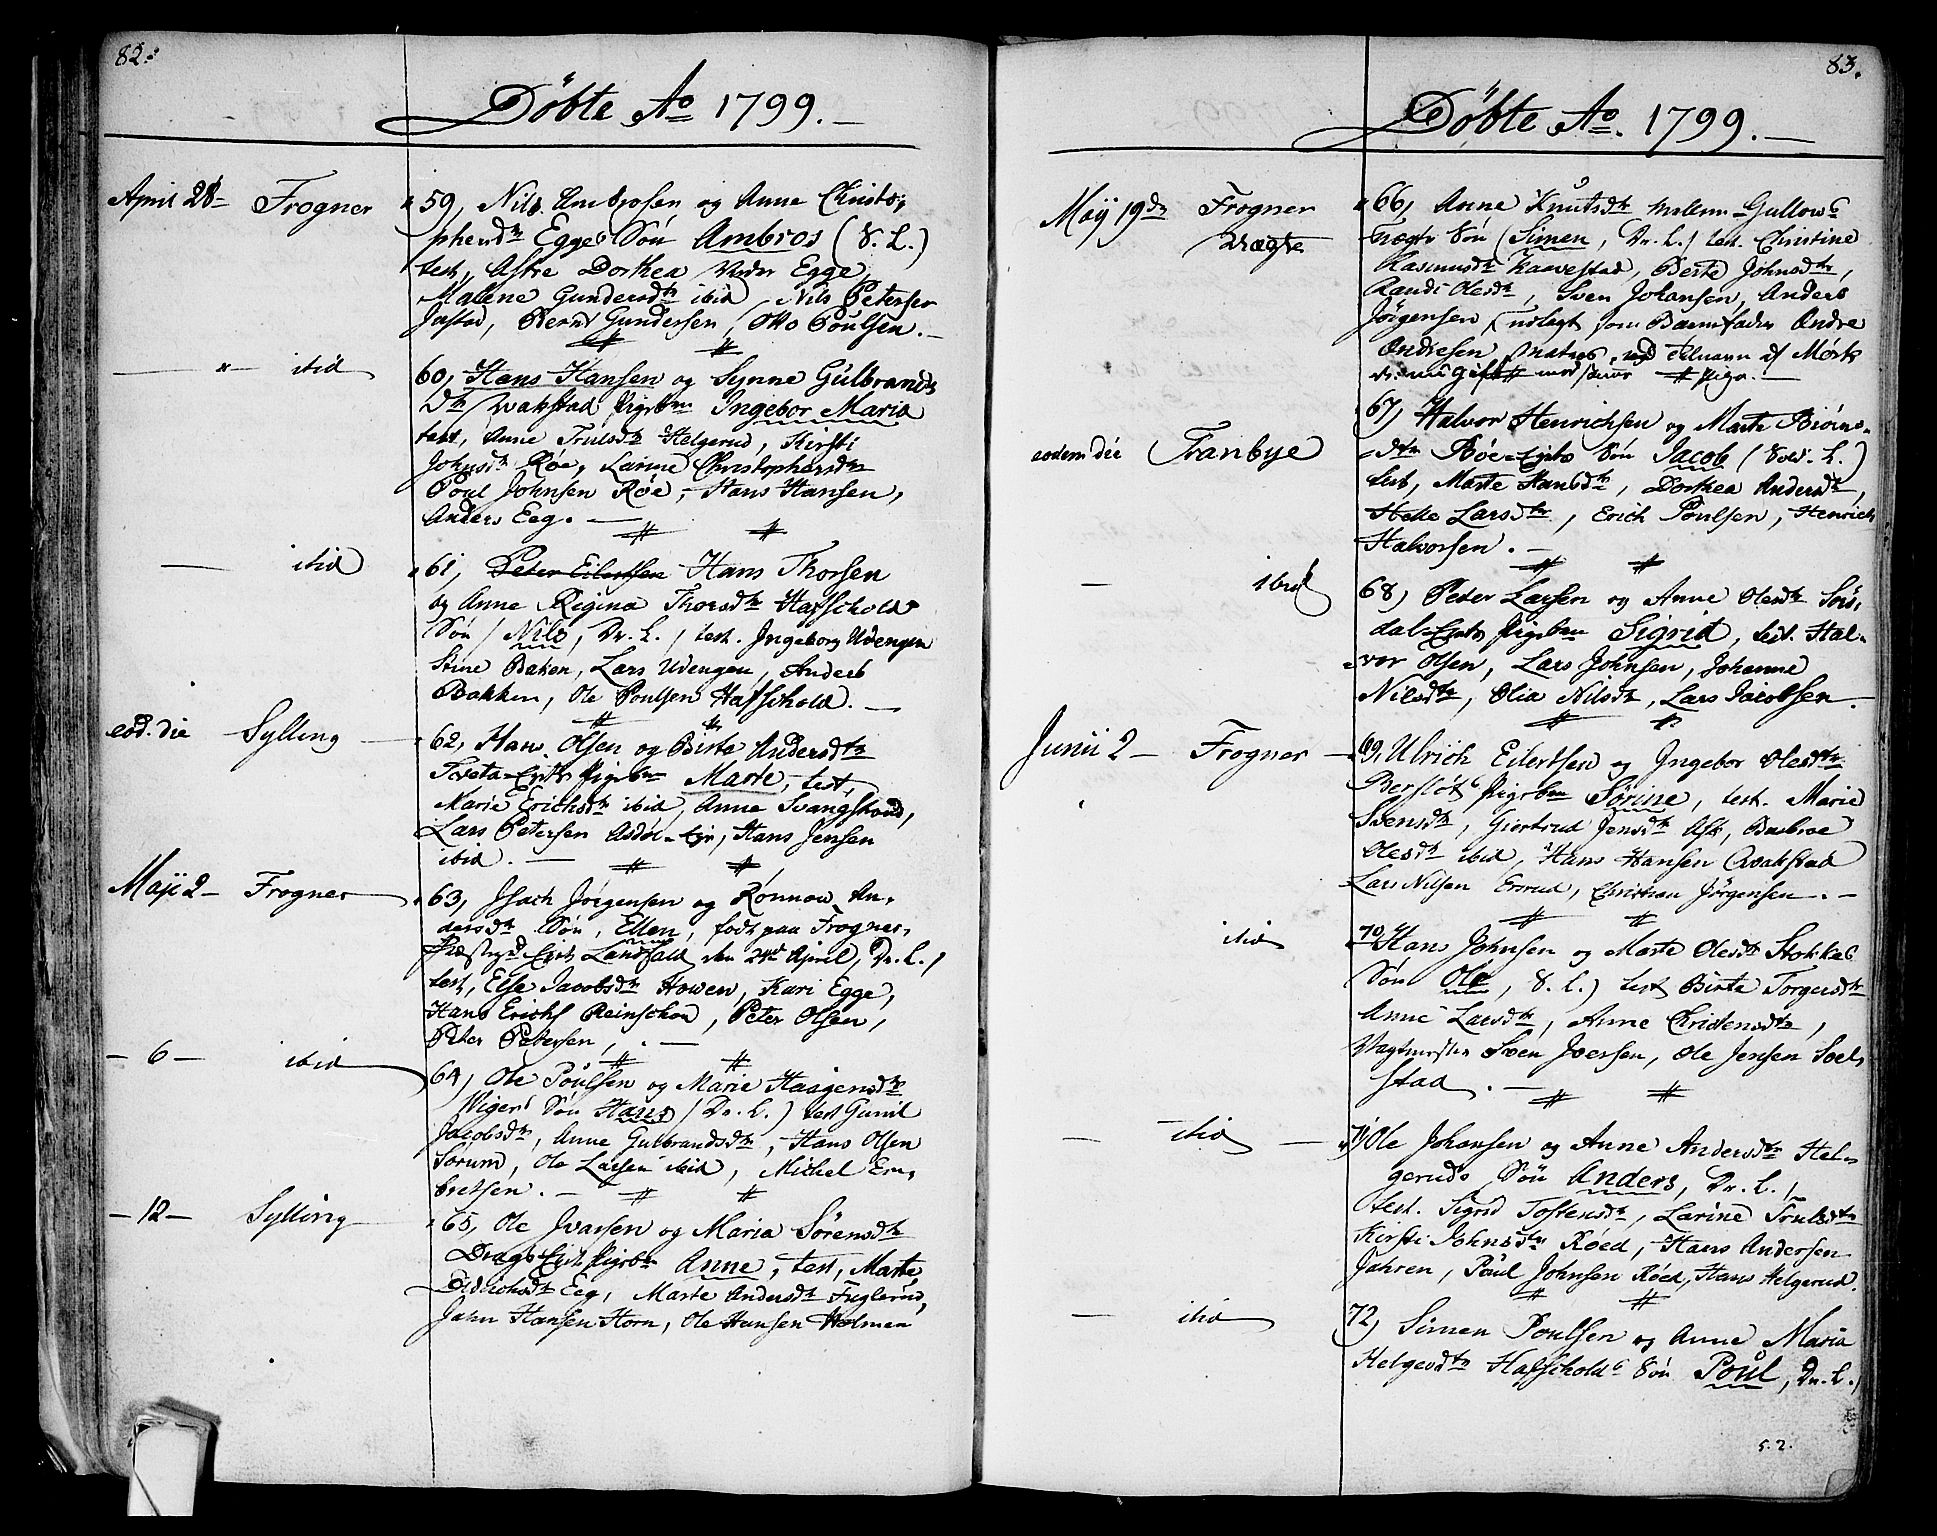 82.
Döbte Ao 1799.
April 28 Frogner 59, Nils Ambrosen og Anne Christo,
phersdtr Egges Sön Ambros (S. L.)
test, Astre Dorthea Egge,
Malene Gundersdtr ibid, Nils Petersen
Justad, Bernt Gundersen, Otto Poulsen.
ibid 60, Hans Hansen og Synne Gulbrands
dtr Qvakstad Pigebn Ingebor Maria
test, Anne Trulsdtr Helgerud, Kirsti
Johnsdtr Röe, Larine Christophersdtr
Poul Johnsen Röe, Hans Hansen,
Anders Eeg.
ibid 61, Peter Eilertsen Hans Thorsen
og Anne Regina Thorsdtr Hafschold
Sön (Nils, Dr. L.) test. Ingeborg Udengen
Stine Baken, Lars Udengen, Anders
Bakken, Ole Poulsen Hafschold.
eod. die Sylling 62, Hans Olsen og Birte Andersdtr
Tveta-Eyets Pigebn Marte, test,
Marie Erichsdtr ibid, Anne Svangstrand,
Lars Petersen Asdöl-Eje, Hans Jensen
ibid.
Maji 2 Frogner 63, Isach Jörgensen og Rönnow An,
dersdtr Sön, Ellen, födt paa Frogner,
Præstegd Eyet Landfald den 24de April, Dr. L.)
test, Else Jacobsdtr Howen, Kari Egge,
Hans Erichs Reinskou, Peter Olsen,
Peter Petersen,
6 ibid 64, Ole Poulsen og Marie Haagensdtr
Wigers Sön Hans (Dr. L.) test Gunil
Jacobsdtr, Anne Gulbrandsdtr, Hans Olsen
Sørum, Ole Larsen ibid, Michel Em,
bretsen.
12 Sylling 65, Ole Ivarsen og Maria Sörensdtr
Drags-Eyet Pigebn Anne, test, Marte
Didrichsdtr Eeg, Marte Andersdtr Fuglerud,
John Hansen Horn, Ole Hansen Holmen
83.
Döbte Ao. 1799.
Maij 19de Frogner 66, Anne Knutsdtr Gullow
Uægte Sön (Simen, Dr. L.) test. Christine
Rasmusdtr Kaavestad, Berte Johnsdtr,
Randi Olesdtr, Sven Johansen, Anders
Jörgensen, udlagt som Barnefader Andre
Andresen Matros, med Tilnavn af Mörk
gift med samme Pige.
eodem die Tranbye 67, Halvor Henrichsen og Marte Biörns
dtr Röe-Eyets Sön Jacob (Sold. L.)
test, Marte Hansdtr, Dorthea Andersdtr,
Helle Larsdtr, Erich Poulsen, Henrich
Halvorsen.
ibid 68, Peter Larsen og Anne Olesdtr Sös,
dal-Eyets Pigebn Sigrid, test. Hal,
vor Olsen, Lars Johnsen, Johanne
Nilsdtr, Olia Nilsdtr, Lars Jacobsen.
Junii 2 Frogner 69, Ulrich Eilertsen og Ingebor Olesdtr
Berslöts Pigebn Sörine, test. Marie
Svensdtr, Giertrud Jensdtr Ask, Barbroe
Olesdtr ibid, Hans Hansen Qvakstad
Lars Nilsen Ersrud, Christian Jörgensen.
ibid 70, Hans Johnsen og Marte Olesdtr Stokkes
Sön Ole, S. L.) test Birte Torgersdtr
Anne Larsdtr, Anne Christensdtr,
Vagtmester Sven Joersen, Ole Jensen Soel,
stad.
ibid 71, Ole Johansen og Anne Andersdtr Hel,
geruds Sön Anders, Dr. L.,
test. Sigrid Tostensdtr, Larine Trulsdtr
Kirsti Johnsdtr Röed, Hans Andersen
Jahren, Poul Johnsen Röed, Hans Helgerud.
ibid 72, Simen Poulsen og Anne Maria
Helgesdtr Hafscholds Sön Poul, Dr. L.)
5.2.